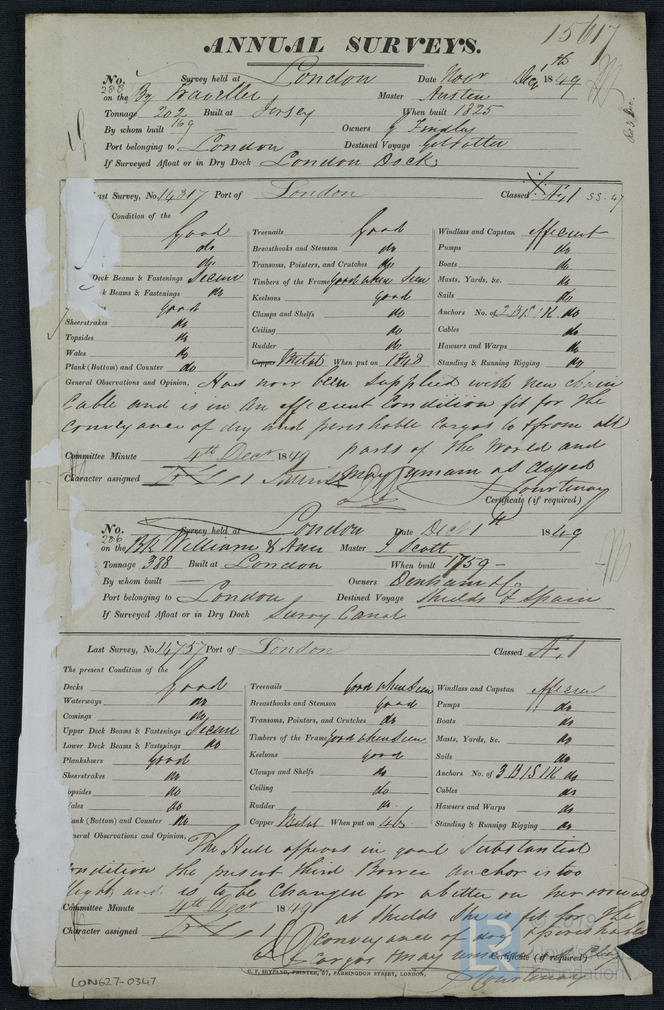 15617
ANNUAL SURVEYS.
No. 288 Survey held at London Date Novr Decr 1st 1849
on the Bg Traveller Master Austen
Tonnage 202 169 Built at Jersey When built 1825
By whom built Owners J Findlay
Port belonging to London Destined Voyage
If Surveyed Afloat or in Dry Dock London Dock
Last Survey, No. 14317 Port of London Classed Æ 1 SS. 47
Condition of the
Good Treenails Good Windlass and Capstan efficient
do Breasthooks and Stemson do Pumps do
do Transoms, Pointers, and Crutches do Boats do
Deck Beams & Fastenings Secure Timbers of the Frame Good when Seen Masts, Yards, &c. do
k Beams & Fastenings do Keelsons Good Sails do
Good Clamps and Shelfs do Anchors No. of 2 B 1 S 1 K do
Sheerstrakes do Ceiling do Cables do
Topsides do Rudder do Hawsers and Warps do
Wales do Copper Metal When put on 1848 Standing & Running Rigging do
Plank (Bottom) and Counter do
General Observations and Opinion, Has now been supplied with new chain
Cable and is in an efficient Condition fit for the
Conveyance of dry and perishable Cargos to & from all
parts of the World and
Committee Minute 4th Decr 1849
may remain as Classed
Character assigned
J Courtenay
Certificate (if required)
No. 286 Survey held at London Date Decr 1st 1849
on the Bk William & Ann Master J Scott
Tonnage 388 Built at London When built 1759
By whom built — Owners Denham & Co
Port belonging to London Destined Voyage Shields & Spain
If Surveyed Afloat or in Dry Dock Surry Canal
Last Survey, No. 14757 Port of London Classed Æ 1
The present Condition of the
Decks Good Treenails Good when Seen Windlass and Capstan efficient
Waterways do Breasthooks and Stemson Good Pumps do
Comings do Transoms, Pointers, and Crutches do Boats do
Upper Deck Beams & Fastenings Secure Timbers of the Frame Good when Seen Masts, Yards, &c. do
Lower Deck Beams & Fastenings do Keelsons Good Sails do
Plankshoers Good Clamps and Shelfs do Anchors No. of 3 B 1 S 1 K do
Sheerstrakes do Ceiling do Cables do
opsides do Rudder do Hawsers and Warps do
ales do Copper Metal When put on 46 Standing & Running Rigging do
lank (Bottom) and Counter do
neral Observations and Opinion, The Hull appears in good Substantial
ondition the present third Bower anchor is too
light and is to be Changed for a better on her arrival
Committee Minute 4th Decr 1849
at Shields She is fit for the
Character assigned
conveyance of dry & perishable
Cargos & may remain as Class
Certificate (if required)
J Courtenay
C. F. SEYFANG, PRINTER, 57, FARRINGDON STREET, LONDON.
LON627-0347
© 2019
Lloyd's Register
Foundation